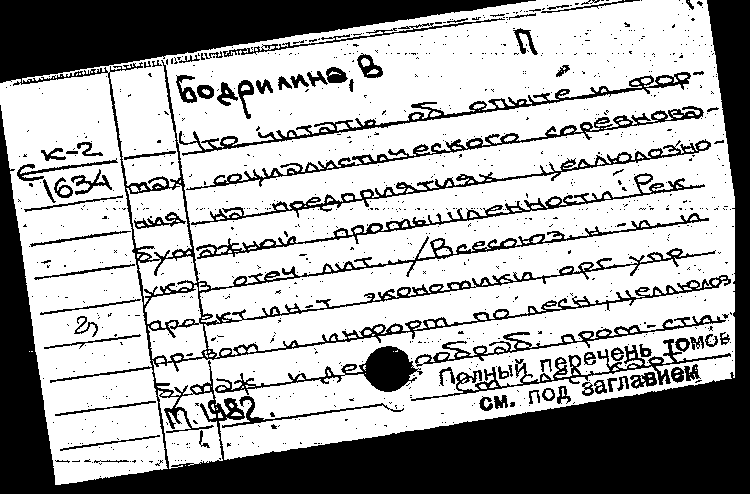 Бодрилина, В П
Что читать об опыте и фор-
мах социалистического соревнова-
ния на предприятиях целлюлозно-
бумажной промышленности: Рек.
указ. отеч. лит... / Всесоюз. н.-и. и
проект. ин-т экономики, орг. упр.
пр-вом и информ. по лесн., целлюлоз.
бумаж и дер обраб. пром-сти...
М. 1982.
см. след. карт.
Полный перечень томов
см. под заглавием
К-2
1634